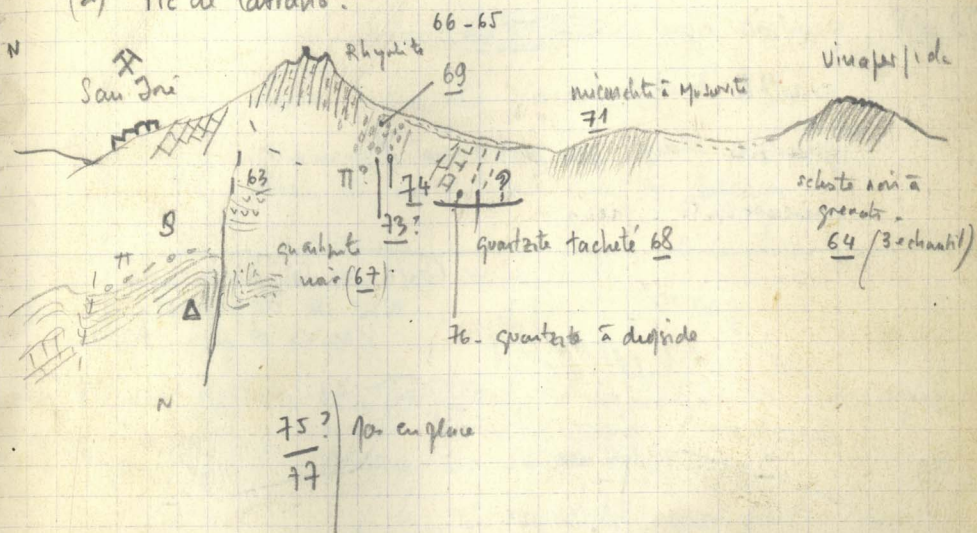 (2) Pic de
66-65
N
San José
Rhyolite
69
micaschite à Muscovite
71
63
π?
74
73?
S
π
Δ
quartzite
noir (67)
?
quartzite tacheté 68
schiste noir à
grenats.
64 (3 echantil)
76 - quartzite à diopside
N
75?
77
pas en place